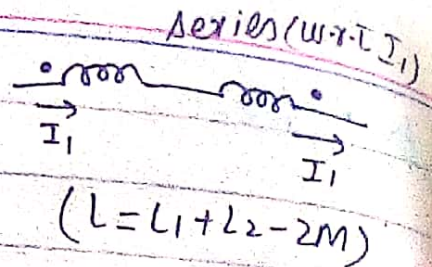 Series (w.r.t I₁)
I₁
I₁
(L = L₁ + L₂ - 2M)